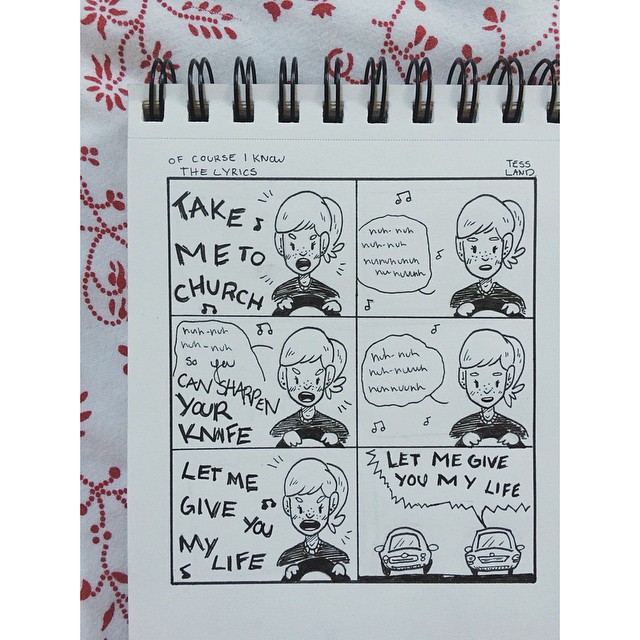 OF COURSE I KNOW
THE LYRICS
TESS
LAND
TAKE
ME TO
CHURCH
nuh-nuh
nuh-nuh
nuhuhunuh
nu-nuunh
nuh-nuh
nuh-nuh
so you
CAN SHARPEN
YOUR
KNIFE
nuh-nuh
nuh-nuuuh
nunnuunh
LET ME
GIVE
YOU
MY
LIFE
LET ME GIVE
YOU MY LIFE
8